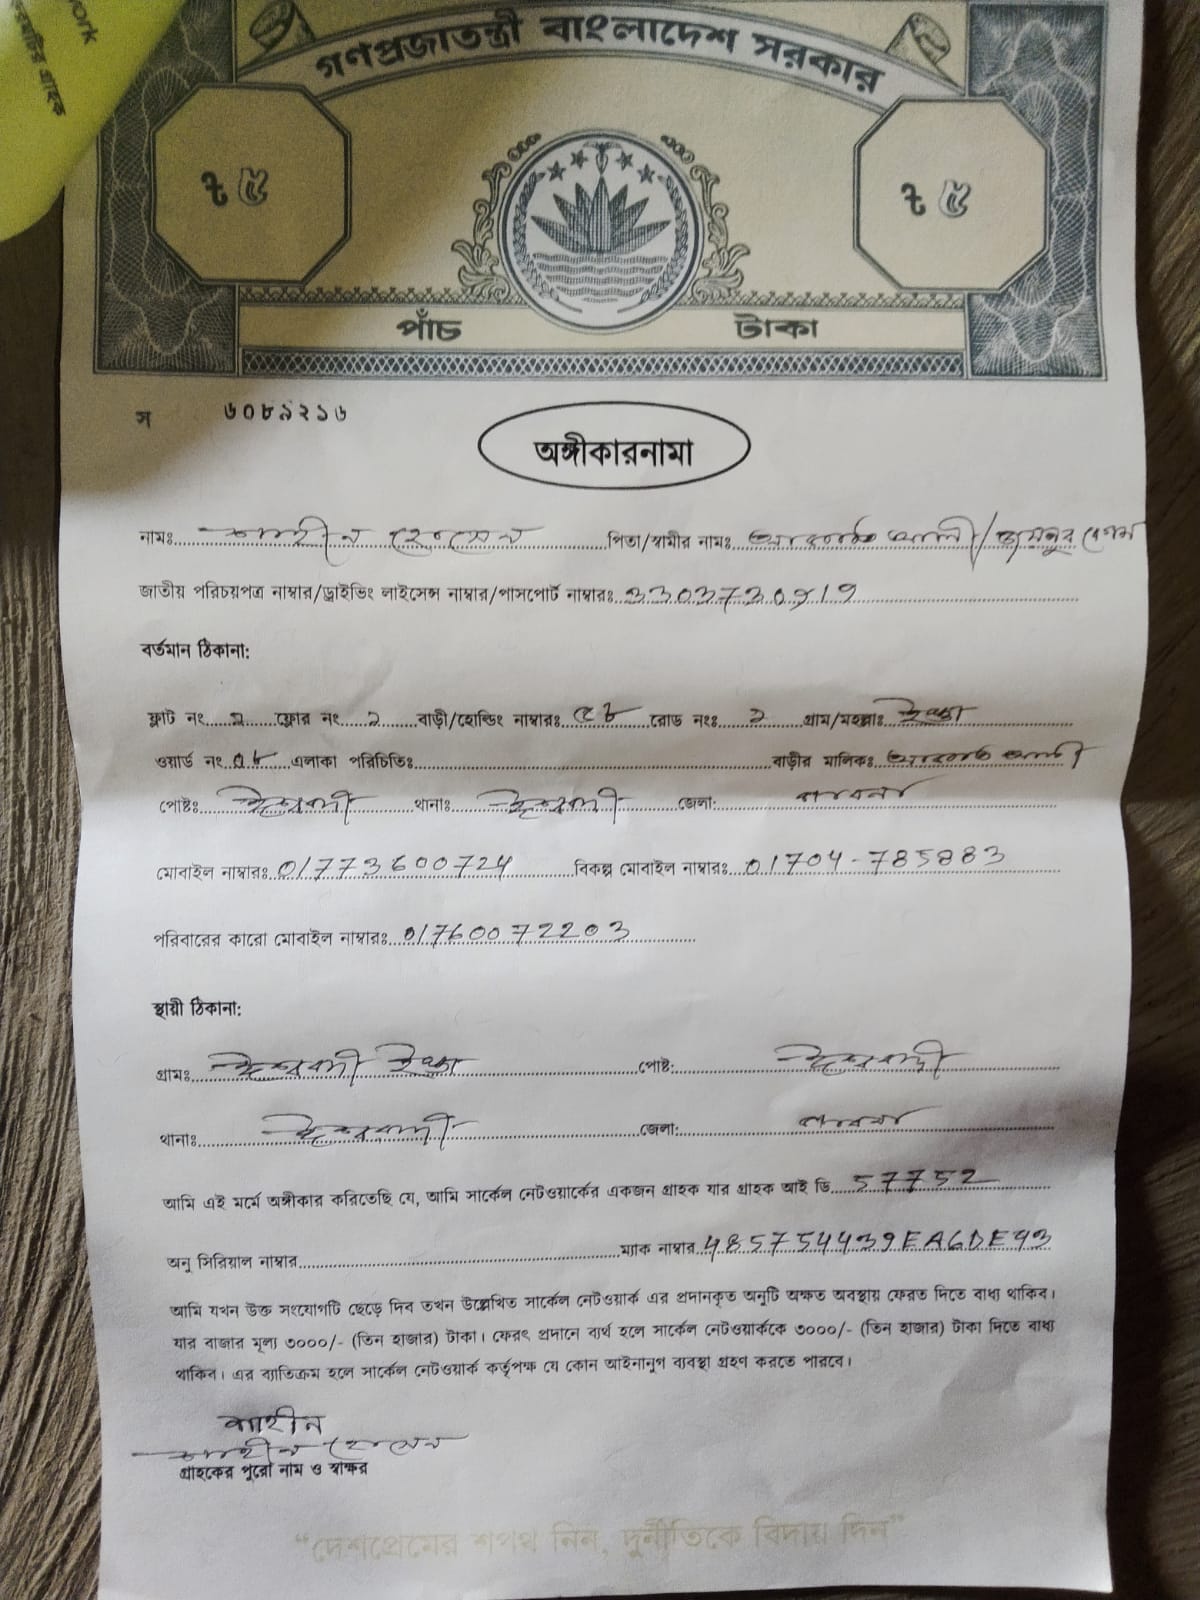 work
গণপ্রজাতন্ত্রী বাংলাদেশ সরকার
ট ৫ ট ৫
পাঁচ টাকা
স ৬০৮৯২১৬
অঙ্গীকারনামা
নামঃ শাহীন হোসেন পিতা/স্বামীর নামঃ আলী/ বেগম
জাতীয় পরিচয়পত্র নাম্বার/ড্রাইভিং লাইসেন্স নাম্বার/পাসপোর্ট নাম্বারঃ 3303730919
বর্তমান ঠিকানা:
ফ্লাট নং ফ্লোর নং বাড়ী/হোল্ডিং নাম্বারঃ রোড নংঃ গ্রাম/মহল্লাঃ
ওয়ার্ড নং ০৮ এলাকা পরিচিতিঃ বাড়ীর মালিকঃ আলী
পোষ্টঃ ঈশ্বরদী থানাঃ ঈশ্বরদী জেলা: পাবনা
মোবাইল নাম্বারঃ 01773600724 বিকল্প মোবাইল নাম্বারঃ 01704-785883
পরিবারের কারো মোবাইল নাম্বারঃ 01760072203
স্থায়ী ঠিকানা:
গ্রামঃ ঈশ্বরদী পোষ্ট: ঈশ্বরদী
থানাঃ ঈশ্বরদী জেলা: পাবনা
আমি এই মর্মে অঙ্গীকার করিতেছি যে, আমি সার্কেল নেটওয়ার্কের একজন গ্রাহক যার গ্রাহক আই ডি 57752
অনু সিরিয়াল নাম্বার ম্যাক নাম্বার 485754439EA6DE43
আমি যখন উক্ত সংযোগটি ছেড়ে দিব তখন উল্লেখিত সার্কেল নেটওয়ার্ক এর প্রদানকৃত অনুটি অক্ষত অবস্থায় ফেরত দিতে বাধ্য থাকিব।
যার বাজার মূল্য ৩০০০/- (তিন হাজার) টাকা। ফেরৎ প্রদানে ব্যর্থ হলে সার্কেল নেটওয়ার্ককে ৩০০০/- (তিন হাজার) টাকা দিতে বাধ্য
থাকিব। এর ব্যাতিক্রম হলে সার্কেল নেটওয়ার্ক কর্তৃপক্ষ যে কোন আইনানুগ ব্যবস্থা গ্রহণ করতে পারবে।
শাহীন
শাহীন হোসেন
গ্রাহকের পুরো নাম ও স্বাক্ষর
“দেশপ্রেমের শপথ নিন, দুর্নীতিকে বিদায় দিন”